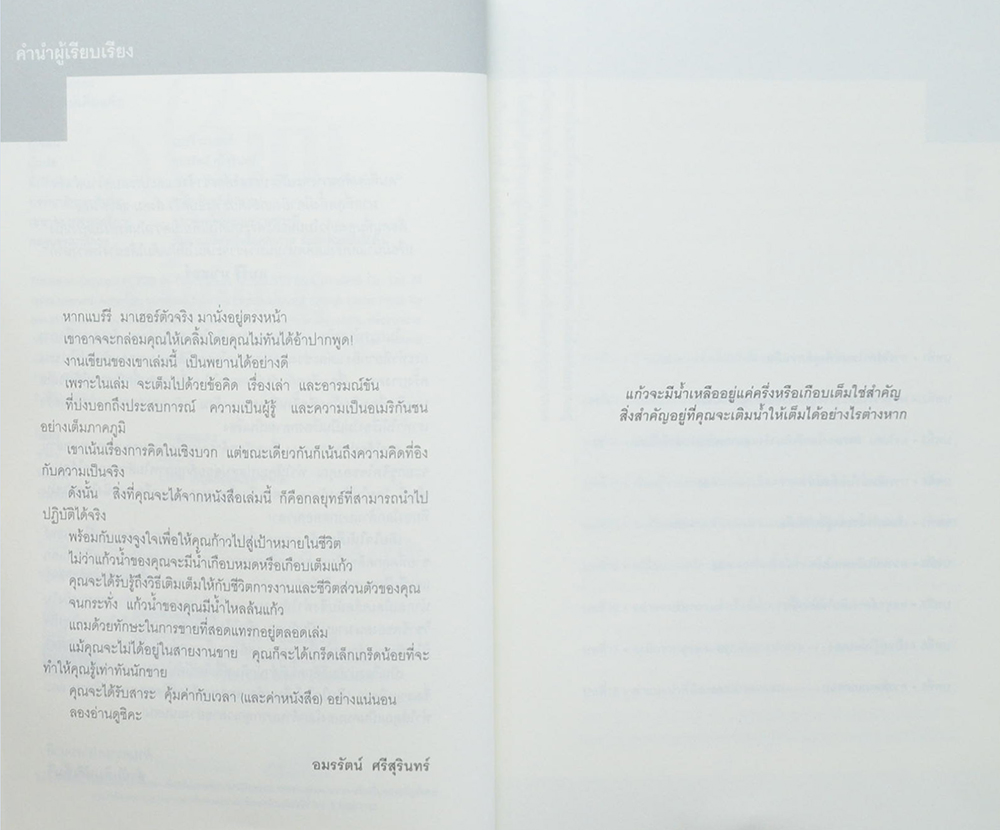 คำนำผู้เรียบเรียง
หากแบร์รี มาเฮอร์ตัวจริง มานั่งอยู่ตรงหน้า
เขาอาจจะกล่อมคุณให้เคลิ้มโดยคุณไม่ทันได้อ้าปากพูด!
งานเขียนของเขาเล่มนี้ เป็นพยานได้อย่างดี
เพราะในเล่ม จะเต็มไปด้วยข้อคิด เรื่องเล่า และอารมณ์ขัน
ที่บ่งบอกถึงประสบการณ์ ความเป็นผู้รู้ และความเป็นอเมริกันชน
อย่างเต็มภาคภูมิ
เขาเน้นเรื่องการคิดในเชิงบวก แต่ขณะเดียวกันก็เน้นถึงความคิดที่อิง
กับความเป็นจริง
ดังนั้น สิ่งที่คุณจะได้จากหนังสือเล่มนี้ ก็คือกลยุทธ์ที่สามารถนำไป
ปฏิบัติได้จริง
พร้อมกับแรงจูงใจเพื่อให้คุณก้าวไปสู่เป้าหมายในชีวิต
ไม่ว่าแก้วน้ำของคุณจะมีน้ำเกือบหมดหรือเกือบเต็มแก้ว
คุณจะได้รับรู้ถึงวิธีเติมเต็มให้กับชีวิตการงานและชีวิตส่วนตัวของคุณ
จนกระทั่ง แก้วน้ำของคุณมีน้ำไหลล้นแก้ว
แถมด้วยทักษะในการขายที่สอดแทรกอยู่ตลอดเล่ม
แม้คุณจะไม่ได้อยู่ในสายงานขาย คุณก็จะได้เกร็ดเล็กเกร็ดน้อยที่จะ
ทำให้คุณรู้เท่าทันนักขาย
คุณจะได้รับสาระ คุ้มค่ากับเวลา (และค่าหนังสือ) อย่างแน่นอน
ลองอ่านดูซิคะ
อมรรัตน์ ศรีสุรินทร์
แก้วจะมีน้ำเหลืออยู่แค่ครึ่งหรือเกือบเต็มใช่สำคัญ
สิ่งสำคัญอยู่ที่คุณจะเติมน้ำให้เต็มได้อย่างไรต่างหาก